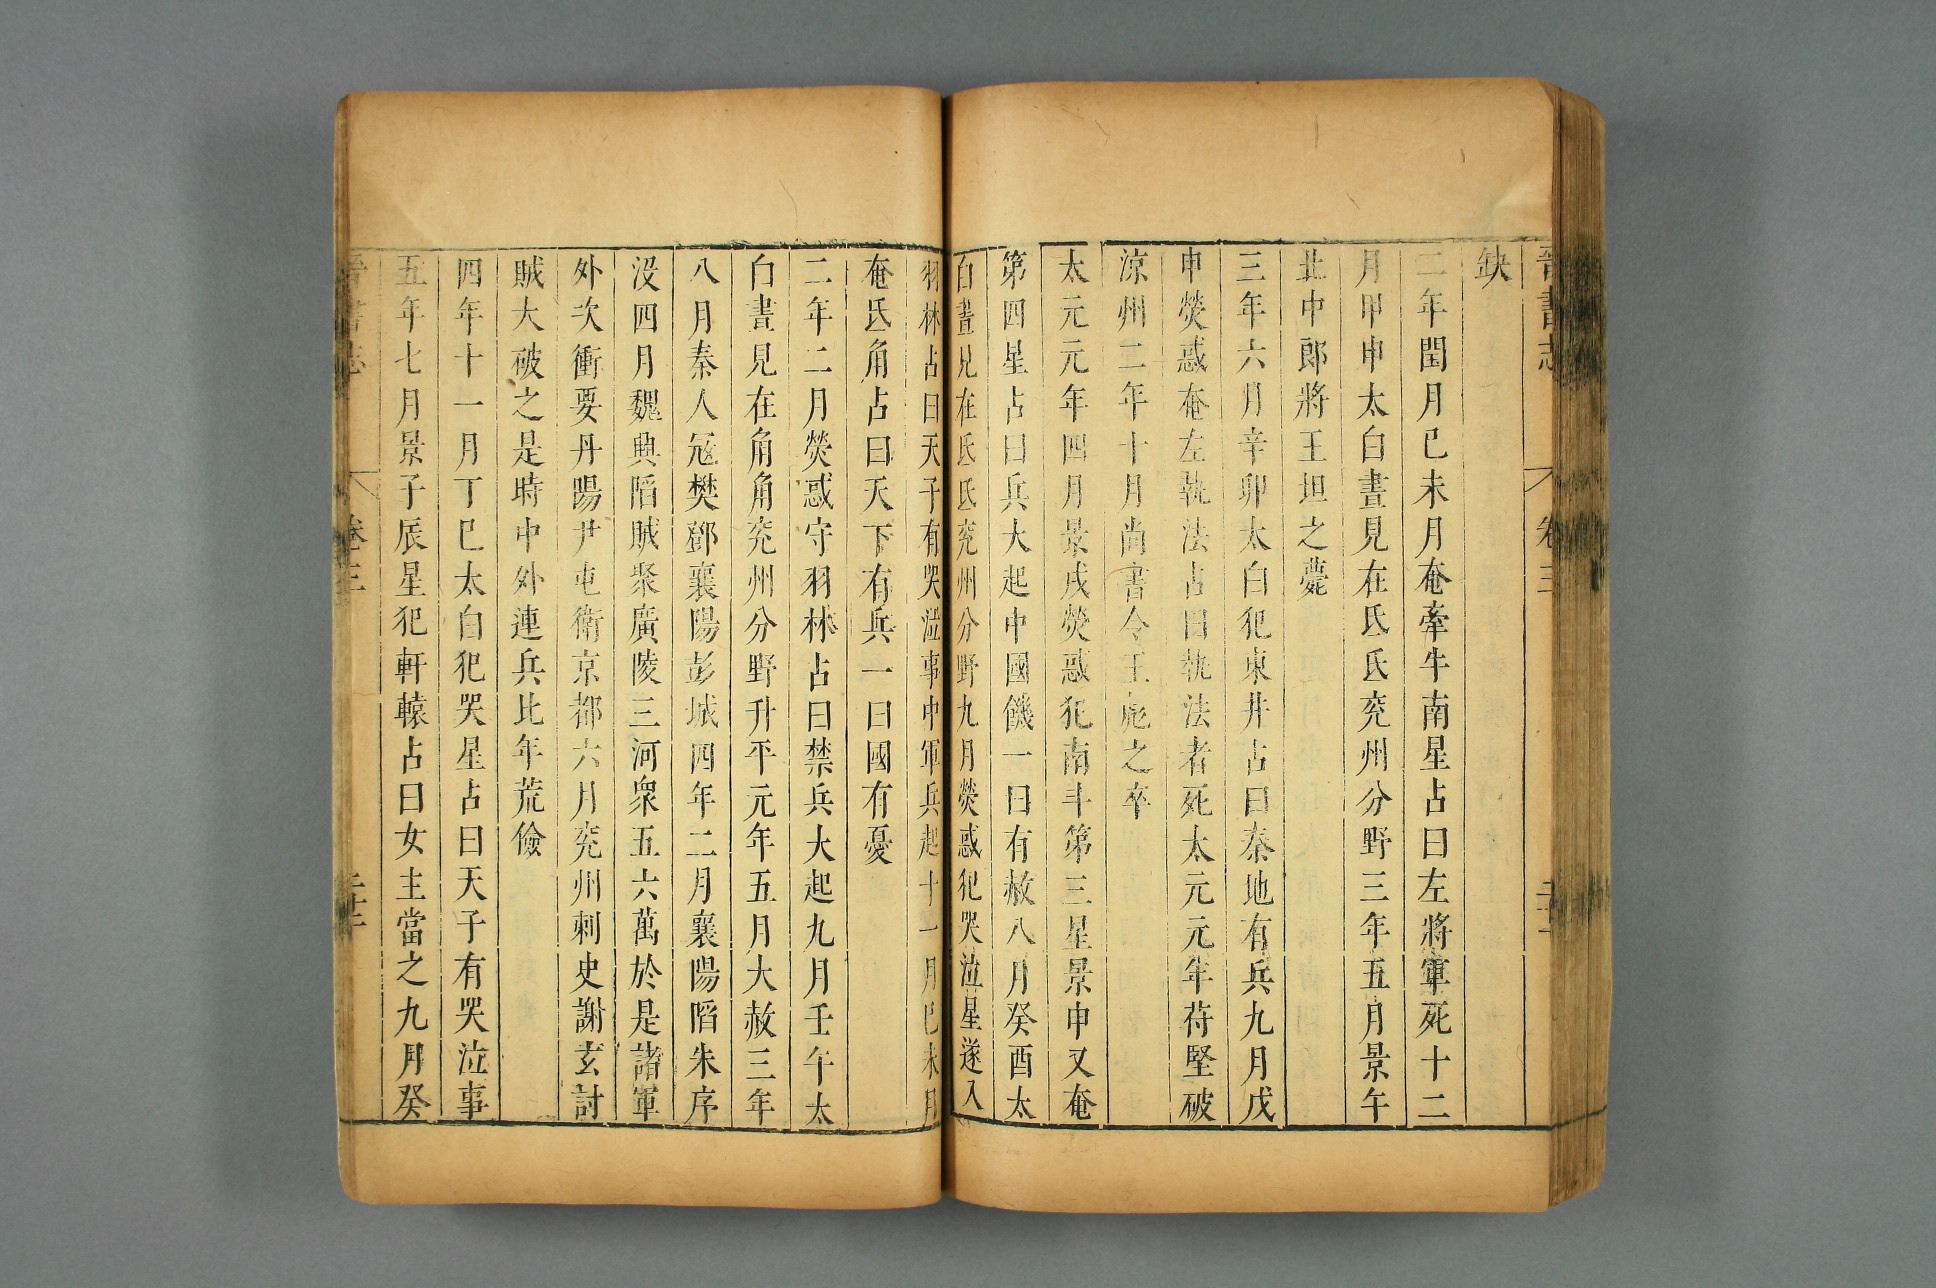 晉書志 卷三
缺
二年閏月已未月奄牽牛南星占曰左將軍死十二
月甲申太白晝見在氐氐兖州分野三年五月景午
北中郎將王坦之薨
三年六月辛卯太白犯東井占曰秦地有兵九月戊
申熒惑奄左執法占曰執法者死太元元年苻堅破
涼州二年十月尚書令王彪之卒
太元元年四月景戌熒惑犯南斗第三星景申又奄
第四星占曰兵大起中國饑一曰有赦八月癸酉太
白晝見在氐氐兖州分野九月熒惑犯哭泣星遂入
羽林占曰天子有哭泣事中軍兵起十一月已未月
奄氐角占曰天下有兵一曰國有憂
二年二月熒惑守羽林占曰禁兵大起九月壬午太
白晝見在角角兖州分野升平元年五月大赦三年
八月秦人寇樊鄧襄陽彭城四年二月襄陽陷朱序
没四月魏興陷賊聚廣陵三河衆五六萬於是諸軍
外次衝要丹陽尹屯衛京都六月兖州刺史謝玄討
賊大破之是時中外連兵比年荒儉
四年十一月丁巳太白犯哭星占曰天子有哭泣事
五年七月景子辰星犯軒轅占曰女主當之九月癸
晉書志 卷三